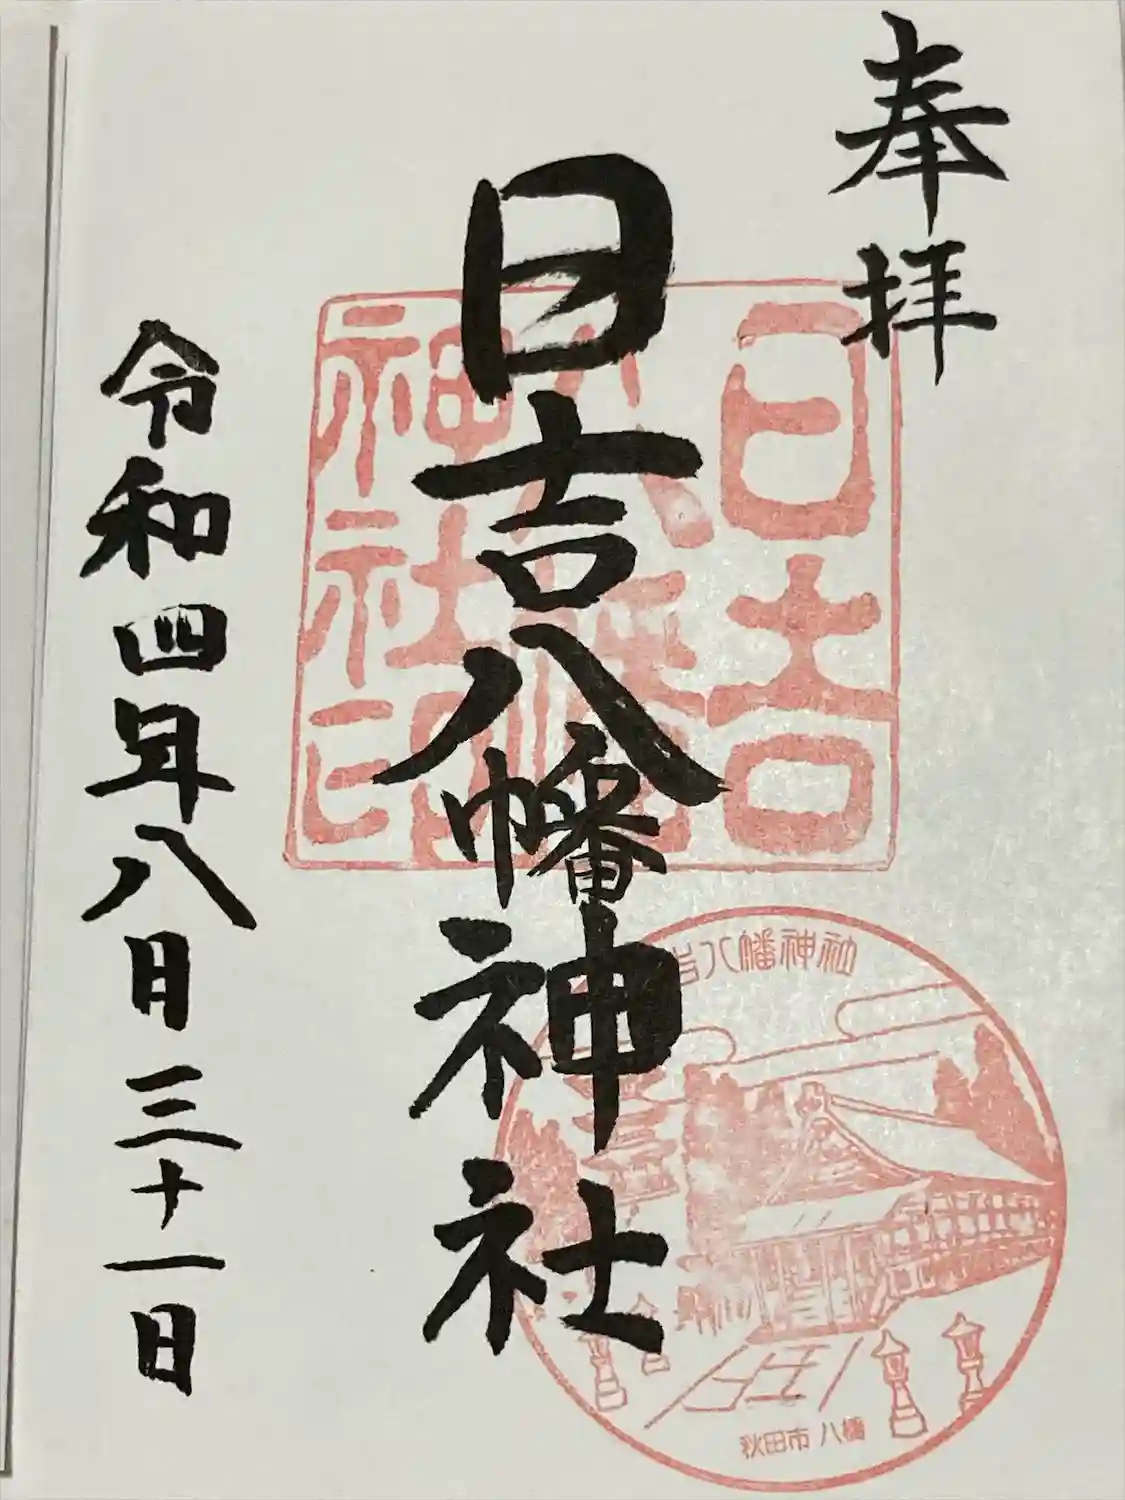 奉拝
日吉八幡神社
令和四年八月三十一日
日吉
八幡
神社印
吉八幡神社
秋田市 八幡